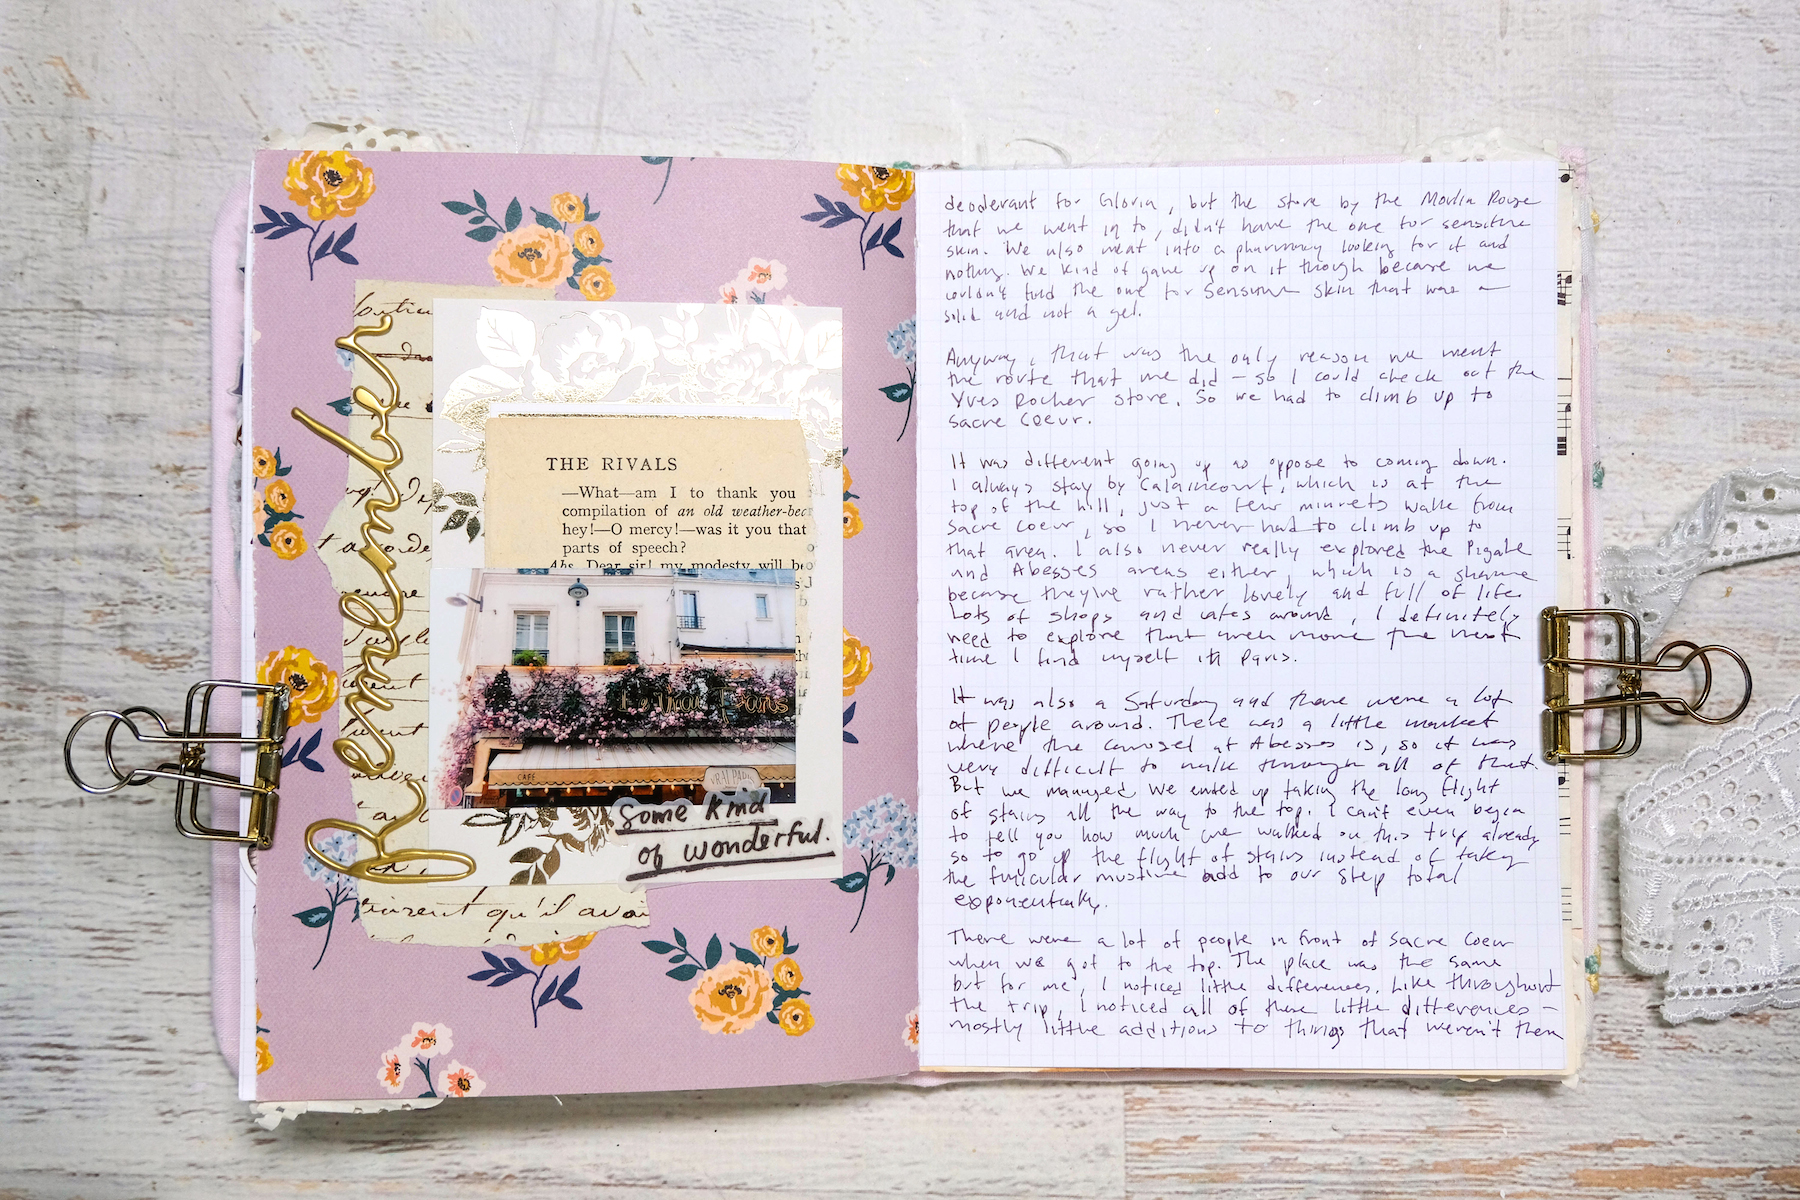 Remember
THE RIVALS
—What—am I to thank you
compilation of an old weather-bec
hey!—O mercy!—was it you that
parts of speech?
Abs. Dear sir! my modesty will be
Le Vrai Paris
CAFÉ
VRAI PARIS
Some kind
of wonderful.
qu'il avai
deoderant for Gloria, but the store by the Moulin Rouge
that we went in to, didn't have the one for sensitive
skin. We also went into a pharmacy looking for it and
nothing. We kind of gave up on it though because we
couldn't find the one for sensitive skin that was a
solid and not a gel.
Anyway, that was the only reason we went
the route that we did - so I could check out the
Yves Rocher store. So we had to climb up to
Sacre Coeur.
It was different going up as oppose to coming down.
I always stay by Calaincourt, which is at the
top of the hill, just a few minutes walk from
Sacre Coeur, so I never had to climb up to
that area. I also never really explored the Pigalle
and Abesses areas either, which is a shame
because they're rather lovely and full of life.
Lots of shops and cafes around, I definitely
need to explore that area more the next
time I find myself in Paris.
It was also a Saturday and there were a lot
of people around. There was a little market
where the carousel at Abesses is, so it was
very difficult to walk through all of that.
But we managed. We ended up taking the long flight
of stairs all the way to the top. I can't even begin
to tell you how much we walked on this trip already
so to go up the flight of stairs instead of taking
the funicular must've add to our step total
exponentially.
There were a lot of people in front of Sacre Coeur
when we got to the top. The place was the same
but for me, I noticed little differences. Like throughout
the trip, I noticed all of these little differences -
mostly little additions to things that weren't there